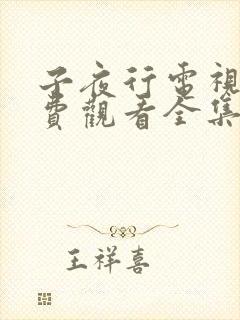 子夜行電視
費觀看全集
王祥喜